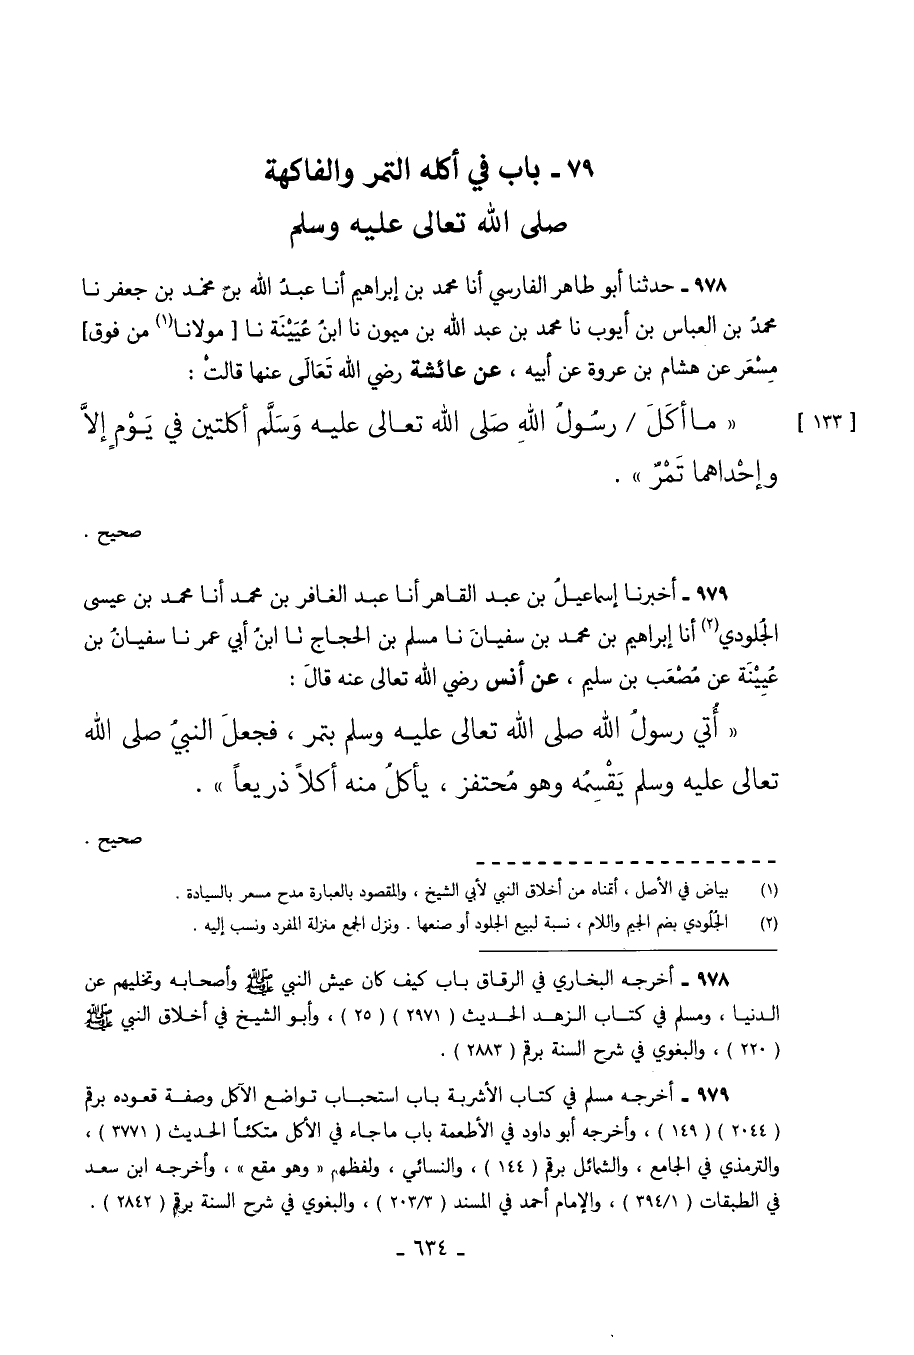 ٧٩ - باب في أكله التمر والفاكهة
صلى الله تعالى عليه وسلم
٩٧٨ - حدثنا أبو طاهر الفارسي أنا محمد بن إبراهيم أنا عبدُ الله بن محمد بن جعفر نا
محمدُ بن العباس بن أيوب نا محمد بن عبد الله بن ميمون نا ابنُ عُيَيْنَة نا [ مولانا(١) من فوق]
مِسْعَر عن هشام بن عروة عن أبيه ، عن عائشة رضي الله تَعَالَى عنها قالتْ :
« ما أكَلَ / رسُولُ اللهِ صَلى الله تعالى عليه وَسَلَّم أكلتين في يَوْمٍ إلاَّ [ ١٣٣ ]
وإحْداهما تَمْرٌ » .
صحيح .
٩٧٩ - أخبرنا إسماعيلُ بن عبد القاهر أنا عبد الغافر بن محمد أنا محمد بن عيسى
الجُلودي(٢) أنا إبراهيم بن محمد بن سفيانَ نا مسلم بن الحجاج نا ابنُ أبي عمر نا سفيانُ بن
عُيِيْنَة عن مُصْعَب بن سليم ، عن أنس رضي الله تعالى عنه قالَ :
« أُتي رسولُ الله صلى الله تعالى عليه وسلم بتمر ، فجعلَ النبيُ صلى الله
تعالى عليه وسلم يَقْسِمُه وهو مُحتفز ، يأكلُ منه أكلاً ذريعاً » .
صحيح .
(١) بياض في الأصل ، أتمناه من أخلاق النبي لأبي الشيخ ، والمقصود بالعبارة مدح مسعر بالسيادة .
(٢) الجُلُودي بضم الجيم واللام ، نسبة لبيع الجلود أو صنعها . ونزل الجمع منزلة المفرد ونسب إليه .
٩٧٨ - أخرجه البخاري في الرقاق باب كيف كان عيش النبي ﷺ وأصحابه وتخليهم عن
الدنيا ، ومسلم في كتاب الزهد الحديث ( ٢٩٧١ ) ( ٢٥ ) ، وأبو الشيخ في أخلاق النبي ﷺ
( ٢٢٠ ) ، والبغوي في شرح السنة برقم ( ٢٨٨٣ ) .
٩٧٩ - أخرجه مسلم في كتاب الأشربة باب استحباب تواضع الآكل وصفة قعوده برقم
( ٢٠٤٤ ) ( ١٤٩ ) ، وأخرجه أبو داود في الأطعمة باب ماجاء في الأكل متكئاً الحديث ( ٣٧٧١ ) ،
والترمذي في الجامع ، والشمائل برقم ( ١٤٤ ) ، والنسائي ، ولفظهم « وهو مقع » ، وأخرجه ابن سعد
في الطبقات ( ٣٩٤/١ ) ، والإمام أحمد في المسند ( ٢٠٣/٣ ) ، والبغوي في شرح السنة برقم ( ٢٨٤٢ ) .
- ٦٣٤ -